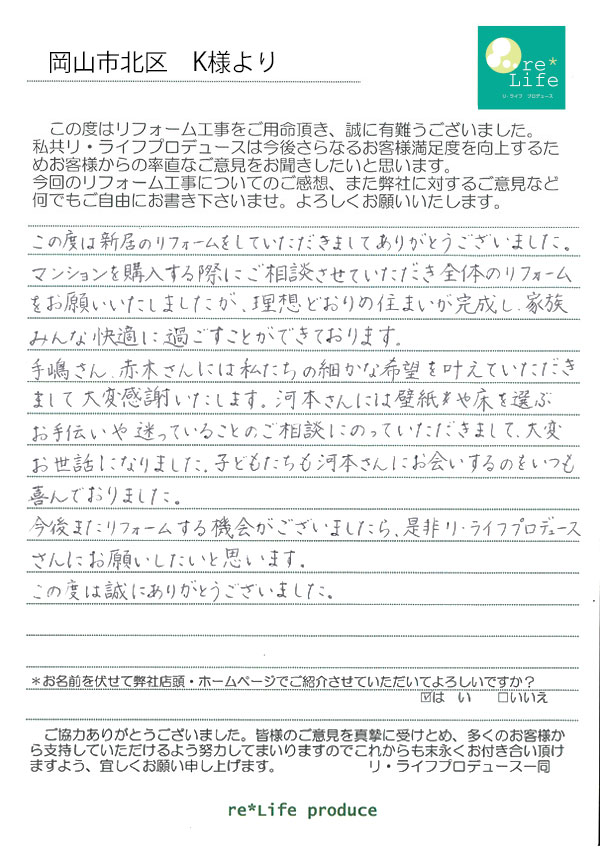 岡山市北区　K様より
re*
Life
リ・ライフ　プロデュース
この度はリフォーム工事をご用命頂き、誠に有難うございました。
私共リ・ライフプロデュースは今後さらなるお客様満足度を向上するた
めお客様からの率直なご意見をお聞きしたいと思います。
今回のリフォーム工事についてのご感想、また弊社に対するご意見など
何でもご自由にお書き下さいませ。よろしくお願いいたします。
この度は新居のリフォームをしていただきましてありがとうございました。
マンションを購入する際にご相談させていただき全体のリフォーム
をお願いいたしましたが、理想どおりの住まいが完成し、家族
みんな快適に過ごすことができております。
手嶋さん、赤木さんには私たちの細かな希望を叶えていただき
まして大変感謝いたします。河本さんには壁紙や床を選ぶ
お手伝いや迷っていることのご相談にのっていただきまして、大変
お世話になりました。子どもたちも河本さんにお会いするのをいつも
喜んでおりました。
今後またリフォームする機会がございましたら、是非リ・ライフプロデュース
さんにお願いしたいと思います。
この度は誠にありがとうございました。
＊お名前を伏せて弊社店頭・ホームページでご紹介させていただいてよろしいですか？
☑は い　□いいえ
ご協力ありがとうございました。皆様のご意見を真摯に受けとめ、多くのお客様か
ら支持していただけるよう努力してまいりますのでこれからも末永くお付き合い頂け
ますよう、宜しくお願い申し上げます。　リ・ライフプロデュース一同
re*Life produce